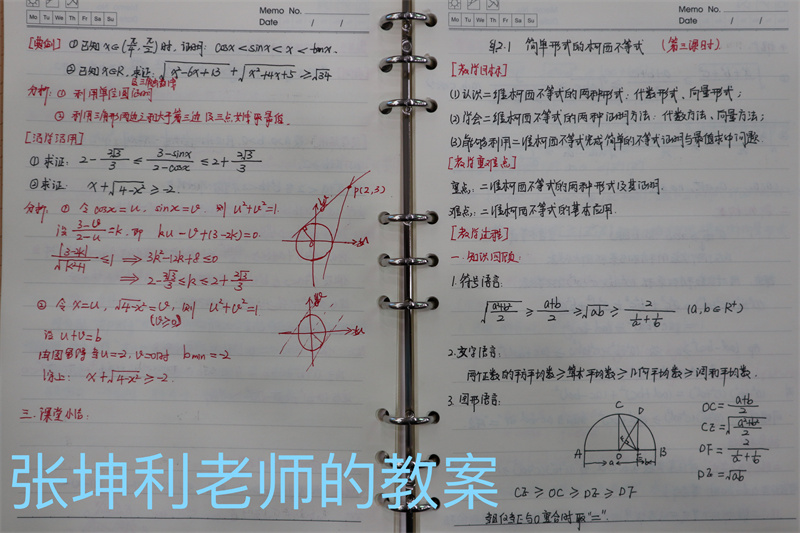 Memo No.
Mo Tu We Th Fr Sa Su Date / /
[案例] ① 已知 x∈(π/4, π/2) 时, 证明: cosx<sinx<x<tanx.
② 已知x∈R, 求证: √(x²-6x+13) + √(x²+4x+5) ≥√34
分析: ① 利用单位圆证明
② 利用三角形两边之和大于第三边 及三点共线取最值.
[活学活用]
① 求证: 2-2√3/3 ≤ (3-sinx)/(2-cosx) ≤ 2+2√3/3
② 求证: x+√(4-x²) ≥-2.
分析: ① 令 cosx=u, sinx=v, 则 u²+v²=1.
设 (3-v)/(2-u)=k, 即 ku-v+(3-2k)=0.
|3-2k|/√(k²+1) ≤1 ⇒ 3k²-12k+8≤0
⇒ 2-2√3/3 ≤k≤2+2√3/3
P(2,3)
② 令 x=u, √(4-x²)=v, 则 u²+v²=1
(v≥0)
设 u+v=b
由图易得当u=-2, v=0时 bmin=-2
综上: x+√(4-x²) ≥-2.
三. 课堂小结:
张坤利老师的教案
Memo No.
Mo Tu We Th Fr Sa Su Date / /
§2.1 简单形式的柯西不等式 (第三课时)
[教学目标]
(1) 认识二维柯西不等式的两种形式: 代数形式、向量形式;
(2) 学会二维柯西不等式的两种证明方法: 代数方法、向量方法;
(3) 能够利用二维柯西不等式完成简单的不等式证明与最值求中问题.
[教学重难点]
重点: 二维柯西不等式的两种形式及其证明.
难点: 二维柯西不等式的基本应用.
[教学过程]
一. 知识回顾:
1. 符号语言:
√((a²+b²)/2) ≥ (a+b)/2 ≥ √ab ≥ 2/(1/a+1/b) (a,b∈R⁺)
2. 文字语言:
两个正数的平方平均数≥算术平均数≥几何平均数≥调和平均数.
3. 图形语言:
A B C D O E F a b
OC=(a+b)/2
CE=√((a²+b²)/2)
DF=2/(1/a+1/b)
DE=√ab
CE≥OC≥DE≥DF
当且仅当E与O重合时取"=".